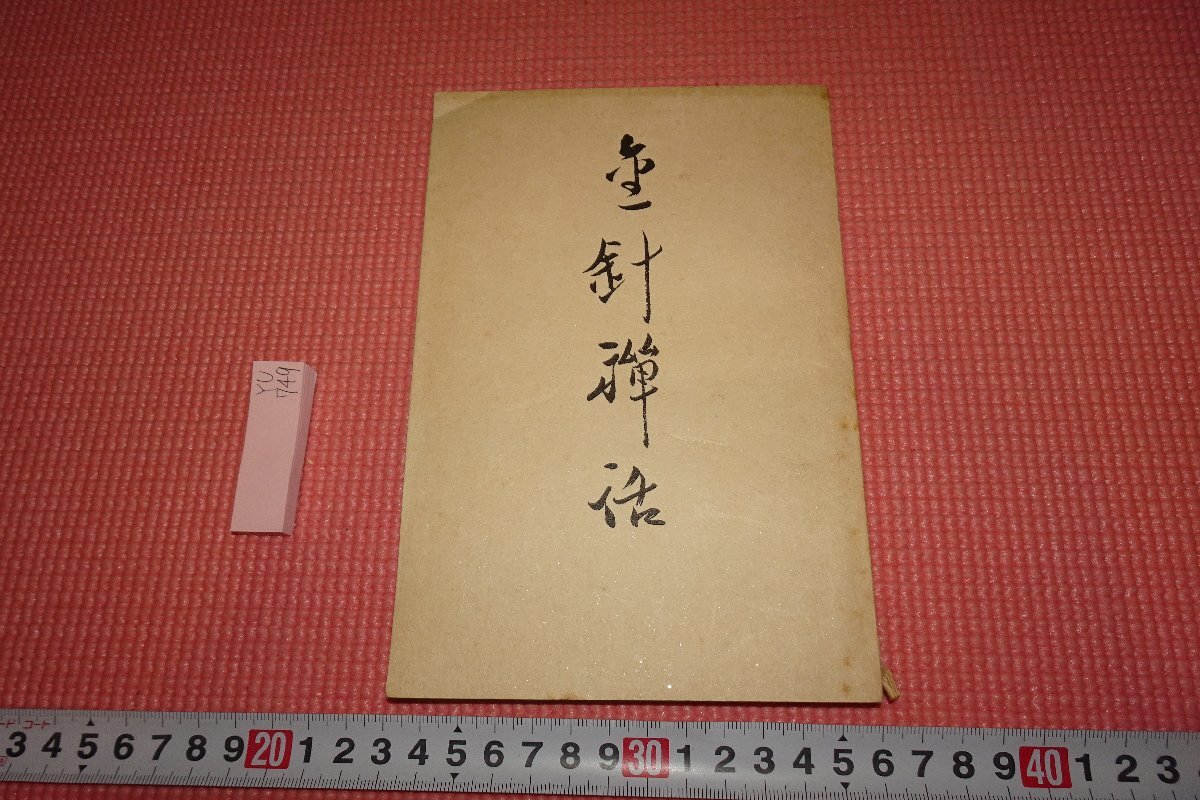 金針禪話
YU
749
コード
3 4 5 6 7 8 9 20 1 2 3 4 5 6 7 8 9 30 1 2 3 4 5 6 7 8 9 40 1 2 3